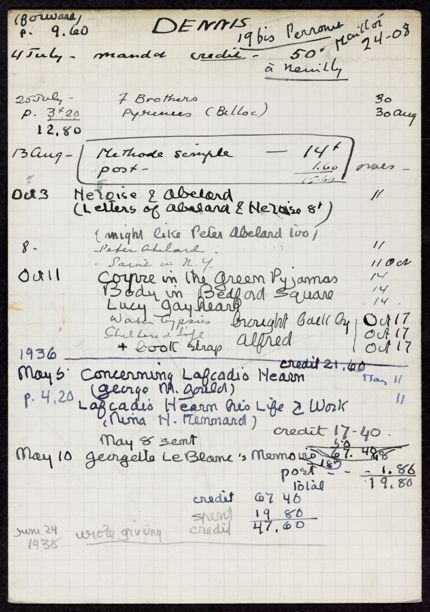 (Forward)
p. 9.60
DENNIS
19 bis Perronet
24-08
4 July - mandat credit - 50+
à Neuilly
25 July - 7 Brothers 30
p. 3+20 Pyrenees (Belloc) 30 Aug
12.80
13 Aug - Methode simple - 14+
post - 1.60
15.60
owes -
Oct 3 Heloise & Abelard "
(Letters of Abelard & Heloise 8+)
(might like Peter Abelard too)
8. - Peter Abelard. "
- Saint in N.Y. 11 Oct
Oct 11 Corpse in the Green Pyjamas 14
Body in Bedford Square 14
Lucy Gayheart 14
Water Gypsies brought back by Oct 17
Sheltered Life Alfred Oct 17
+ book strap Oct 17
1936
credit 21.60
May 5 Concerning Lafcadio Hearn May 11
(George M. Gould)
p. 4.20 Lafcadio Hearn his Life & Work 11
(Nina H. Kennard)
May 8 sent credit 17-40
50
May 10 Georgette Le Blanc's Memoirs 67.40
18
post - - 1.80
Total 19.80
credit 67 40
spent 19 80
credit 47.60
June 24 wrote giving
1938